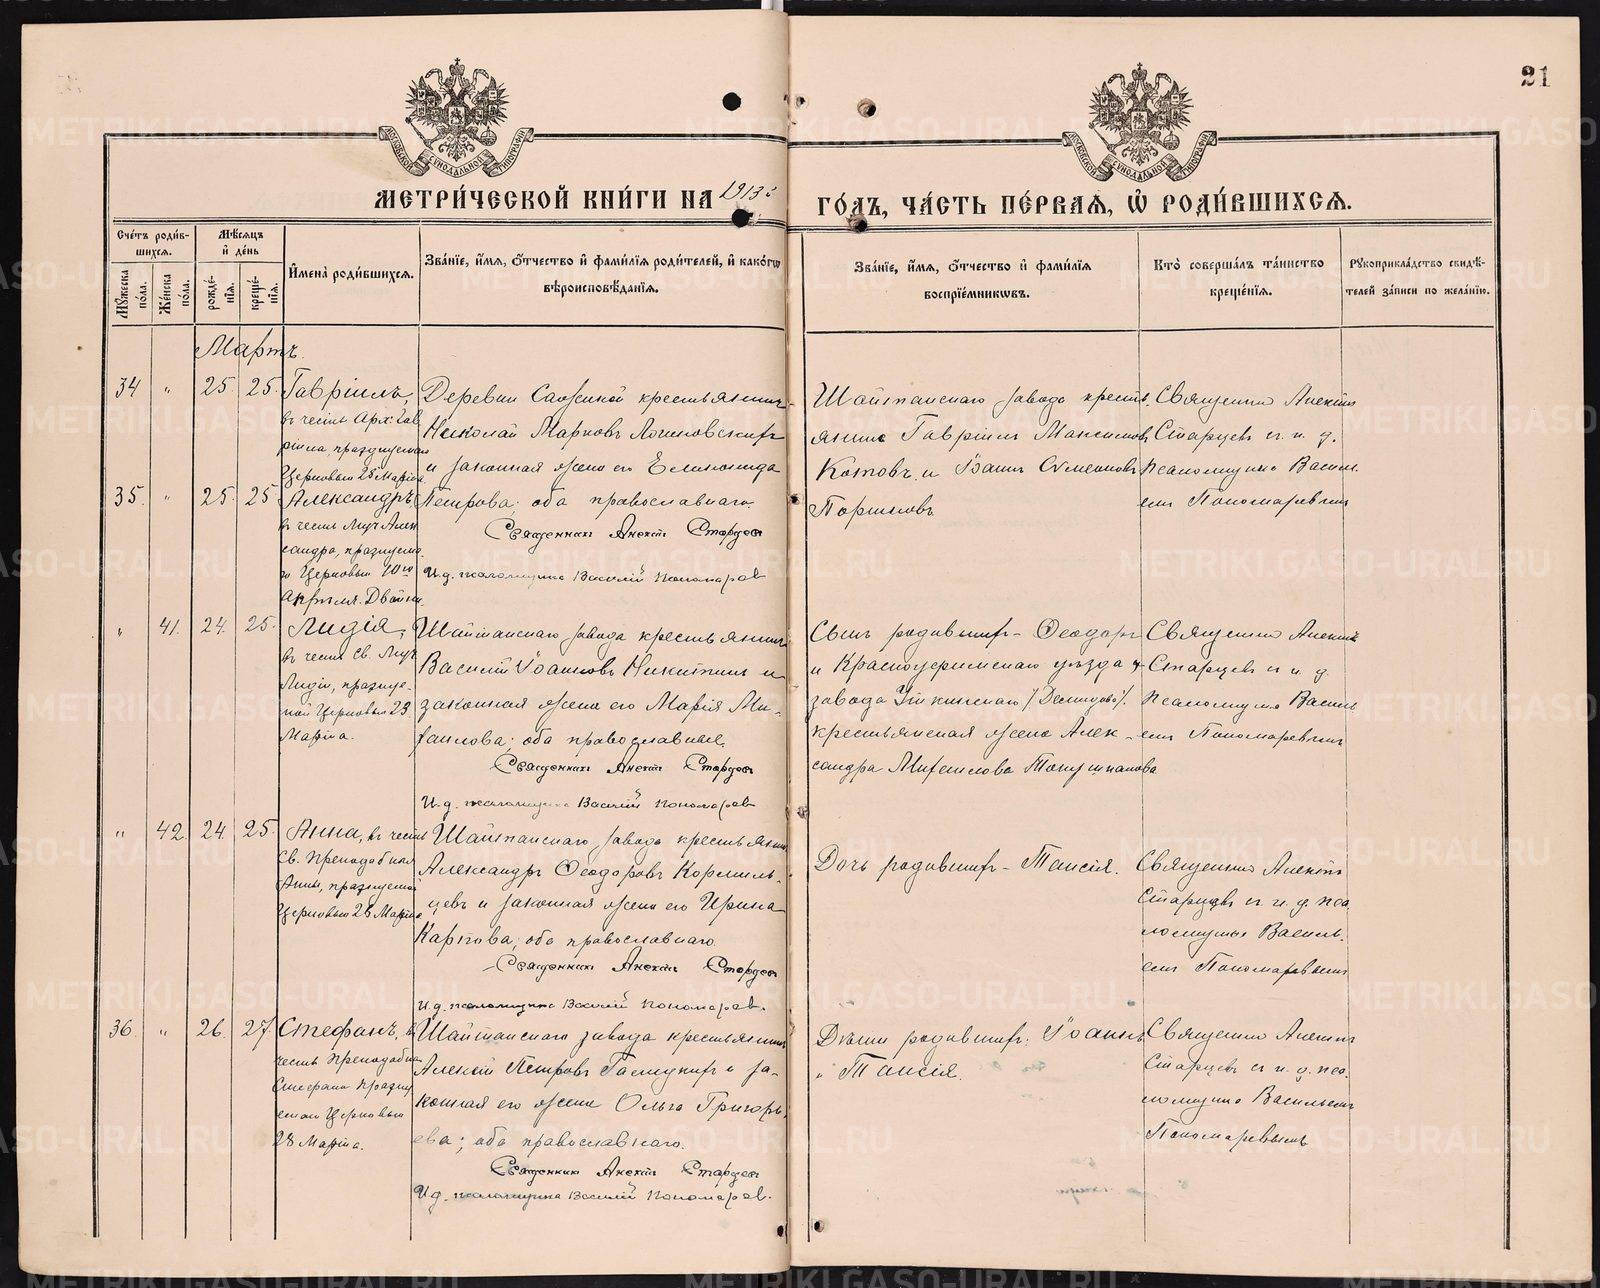 21
МОСКОВСКОЙ СУНОДАЛЬНОЙ ТИПОГРАФІИ
МОСКОВСКОЙ СУНОДАЛЬНОЙ ТИПОГРАФІИ
МЕТРИ́ЧЕСКОЙ КНИ́ГИ НА 1913й
ГО́ДЪ, ЧА́СТЬ ПЕ́РВАЯ, Ѡ РОДИ́ВШИХСЯ.
Сче́тъ роди́в-
шихся.
Мꙋжеска по́ла.
Же́нска по́ла.
Мѣ́сяцъ
и҆ де́нь
рожде́-
нїя.
креще́-
нїя.
И҆мена̀ роди́вшихся.
Зва́нїе, и҆́мя, ѻ҆́тчество и҆ фами́лїя роди́телей, и҆ како́гѡ
вѣроисповѣ́данїя.
Зва́нїе, и҆́мя, ѻ҆́тчество и҆ фами́лїя
воспрїе́мникѡвъ.
Кто̀ соверша́лъ та́инство
креще́нїя.
Рꙋкоприкла́дство свидѣ́-
телей за́писи по жела́нїю.
Мартъ.
34 " 25 25
Гавріилъ,
въ честь Арх. Гав
ріила, празднуемаго
Церковью 26 Марта
Деревни крестьянинъ
Николай Марковъ Логиновскихъ
и законная жена его Еликонида
Петрова; оба православнаго.
Священникъ Алексій Старцевъ
И.д. псаломщика Василій Пономаревъ
Шайтанскаго завода кресть
янинъ Гавріилъ Максимовъ
Котовъ и Іоаннъ Симеоновъ
Поршневъ
Священникъ Алексій
Старцевъ съ и. д.
псаломщика Васил.
емъ Пономаревымъ
35. " 25 25
Александръ,
въ честь Муч. Алек
сандра, празднуема
го Церковью 10го
Апрѣля. Двойни.
" 41. 24 25
Лидія,
въ честь Св. Муч
Лидіи, праздну-
мой Церковью 23
Марта.
Шайтанскаго завода крестьянинъ
Василій Іоанновъ Никитинъ и
законная жена его Марія Ми-
хаилова; оба православные.
Священникъ Алексій Старцевъ
И.д. псаломщика Василій Пономаревъ
Сынъ родившихъ - Ѳеодоръ
и Красноуфимскаго уѣзда
завода Уткинскаго /Демидова/.
крестьянская жена Алек-
сандра Михаилова
Священникъ Алексій
Старцевъ съ и. д.
псаломщика Василь
емъ Пономаревымъ
" 42. 24 25
Анна, въ честь
Св. Преподобной
Анны, празднуемой
Церковью 26 Марта
Шайтанскаго завода крестьянинъ
Александръ Ѳеодоровъ Кормиль-
цевъ и законная жена его Ирина
Карпова; оба православнаго
Священникъ Алексій Старцевъ
И.д. псаломщика Василій Пономаревъ.
Дочь родившихъ - Таисія.
Священникъ Алексій
Старцевъ съ и. д. пса
ломщика Василь.
емъ Пономаревымъ
36. " 26. 27.
Стефанъ, въ
честь Преподобнаго
Стефана праздну
емаго Церковью
28 Марта.
Шайтанскаго завода крестьянинъ
Алексій Петровъ и за-
конная его жена Ольга Григорь.
ева; оба православнаго.
Священникъ Алексій Старцевъ
И.д. псаломщика Василій Пономаревъ.
Дѣти родившихъ: Іоаннъ
и Таисія.
Священникъ Алексій
Старцевъ съ и. д. пса.
ломщика Васильемъ
Пономаревымъ
METRIKI.GASO-URAL.RU